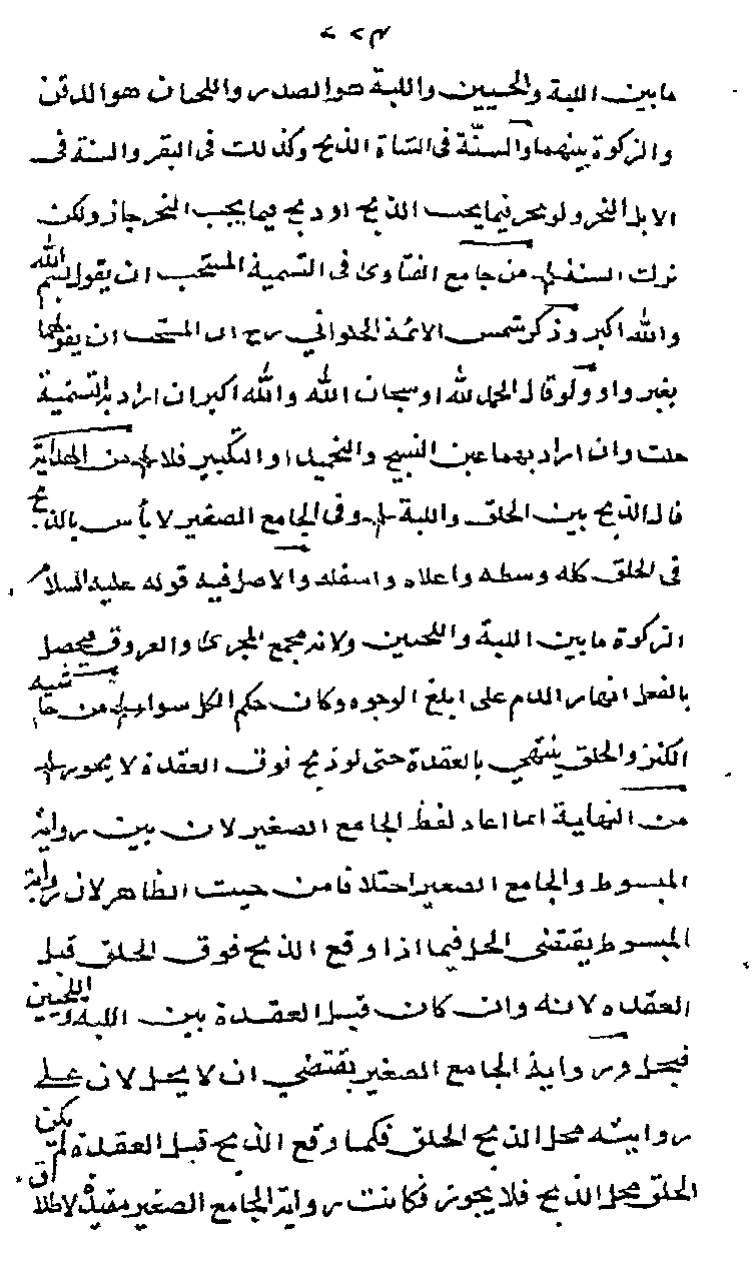 ما بين اللبة والحيين واللبة هو الصدر واللحيان هو الدقن
والزكوة بينهما والسنة في الشاة الذبح وكذلك في البقر والسنة في
الابل النحر ولو نحر فيما يحب الذبح او ذبح فيما يجب النحر جاز ولكن
ترك السنة من جامع الفتاوى في التسمية المستحب ان يقول بسم الله
والله اكبر وذكر شمس الائمة الحلواني رح ان المستحب ان يقولها
بغير واو ولو قال الحمد لله او سبحان الله والله اكبر ان اراد به التسمية
حلت وان اراد بهما عين التسبيح والتحميد او التكبير فلا من الهداية
قال الذبح بين الحلق واللبة وفي الجامع الصغير لا بأس بالذبح
في الحلق كله وسطه واعلاه واسفله والاصل فيه قوله عليه السلام
الزكوة ما بين اللبة واللحيين ولانه مجمع المجرى والعروق فيحصل
بالفعل انهار الدم على ابلغ الوجوه وكان حكم الكل سواء من حاشيه
الكنز والحلق ينتهي بالعقدة حتى لو ذبح فوق العقدة لا يجوز
من النهاية انما اعاد لفظ الجامع الصغير لان بين رواية
المبسوط والجامع الصعير اختلافا من حيث الظاهر لان رواية
المبسوط يقتضى الحل فيما اذا وقع الذبح فوق الحلق قبل
العقده لانه وان كان قبل العقدة بين اللبه و اللحيين
فيحل ورواية الجامع الصغير يقتضي ان لا يحل لان على
روايته محل الذبح الحلق فكما وقع الذبح قبل العقدة لم يكن
الحلق محل الذبح فلا يجوز فكانت رواية الجامع الصغير مقيدة لاطلاق